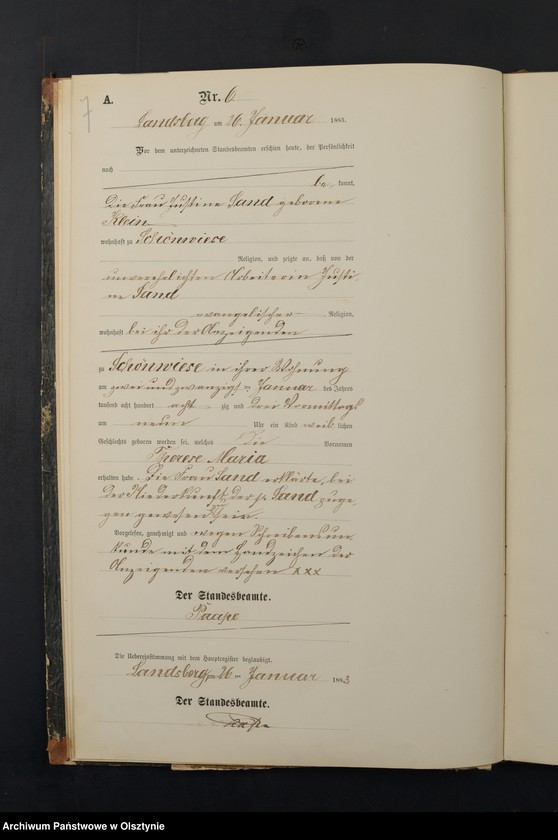 7
A.
Nr. 6
Landsberg am 26. Januar 1883.
Vor dem unterzeichneten Standesbeamten erschien heute, der Persönlichkeit
nach
be kannt,
Die Frau Justine Sand geborene
Klein
wohnhaft zu Schönwiese
Religion, und zeigte an, daß von der
unverehelichten Arbeiterin Justi
ne Sand
evangelischer Religion,
wohnhaft bei ihr der Anzeigenden
zu Schönwiese in ihrer Wohnung
am zwei und zwanzigsten Januar des Jahres
tausend acht hundert acht zig und drei Vormittags
um neun Uhr ein Kind weib lichen
Geschlechts geboren worden sei, welches die Vornamen
Therese Maria
erhalten habe. Die Frau Sand erklärte, bei
der Niederkunft der p. Sand zuge,
gen gewesen zu sein.
Vorgelesen, genehmigt und wegen Schreibensun
kunde mit dem Handzeichen der
Anzeigenden versehen xxx
Der Standesbeamte.
Paape
Die Uebereinstimmung mit dem Hauptregister beglaubigt.
Landsberg am 26 ten Januar 1883
Der Standesbeamte.
Paape
Archiwum Państwowe w Olsztynie